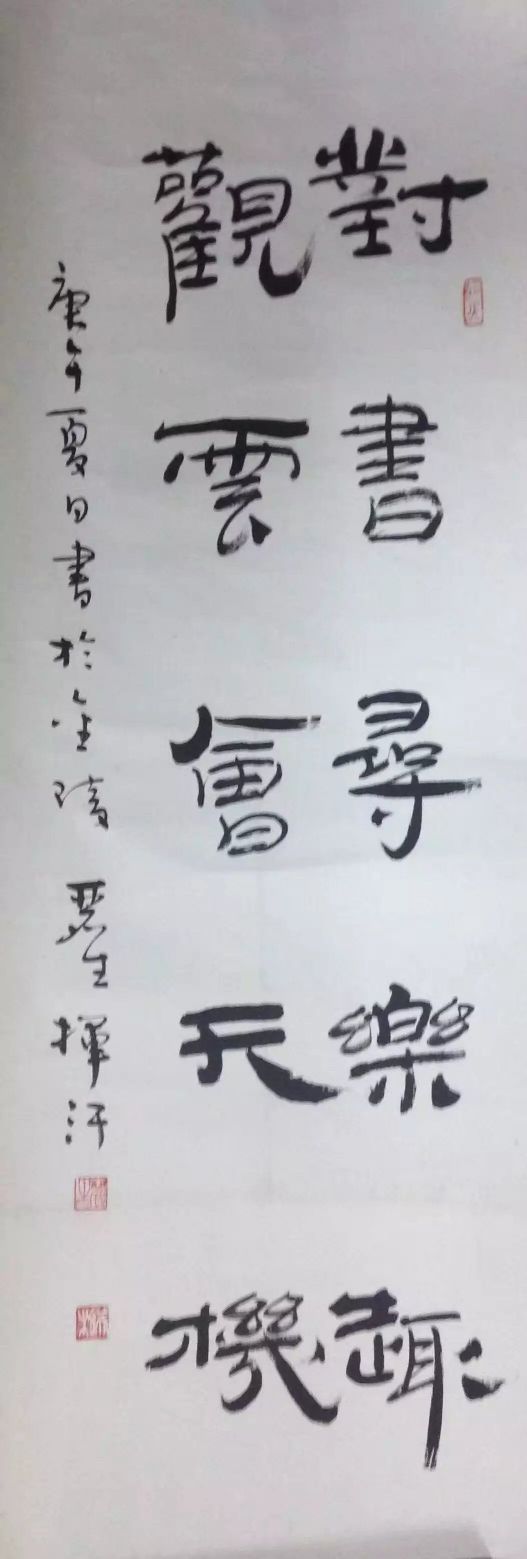 對書尋樂趣
觀雲會天機
庚午夏日書於金陵 生揮汗